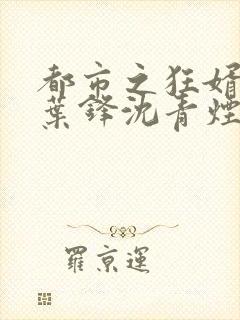 都市之狂婿
葉鋒沈青煙
羅京運